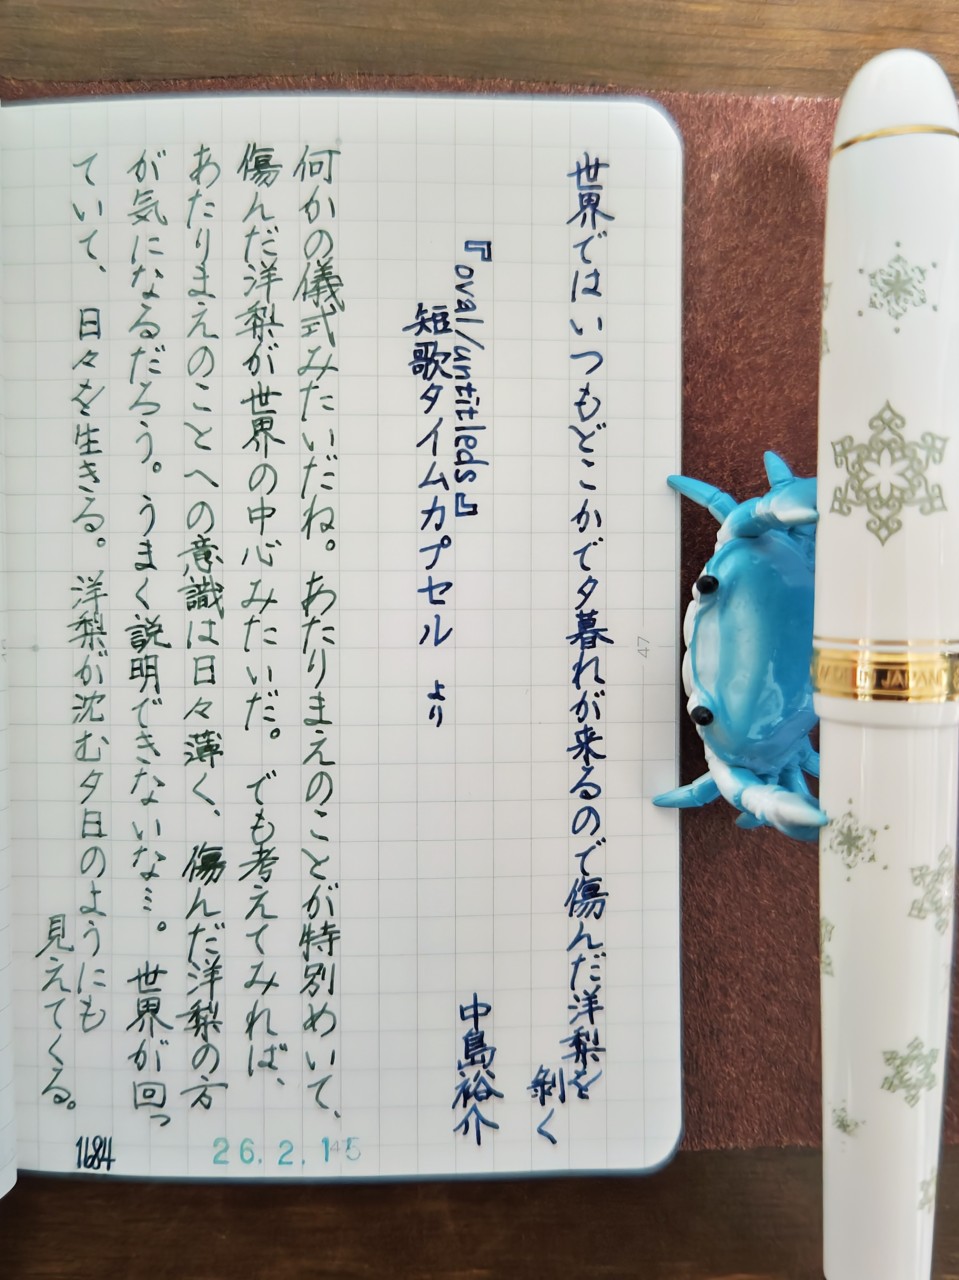 世界ではいつもどこかで夕暮れが来るので傷んだ洋梨を
剝く
中島裕介
『oval/untitleds』
短歌タイムカプセル より
何かの儀式みたいだね。あたりまえのことが特別めいて、
傷んだ洋梨が世界の中心みたいだ。でも考えてみれば、
あたりまえのことへの意識は日々薄く、傷んだ洋梨の方
が気になるだろう。うまく説明できないな…。世界が回っ
ていて、日々を生きる。洋梨が沈む夕日のようにも
見えてくる。
1684
26.2.15
47